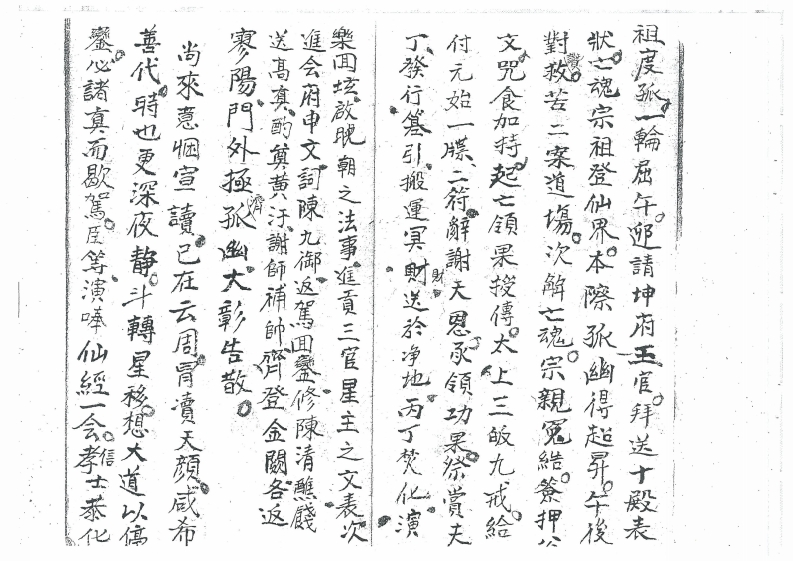 祖度孤一輪屈午迎請坤府王官拜送十殿表
狀亡魂宗祖登仙界本際孤幽得超昇午後
對救苦二案道場次解亡魂宗親冤結簽押公
文咒食加持起亡領果授傳太上三皈九戒給
付元始一牒二符辭謝天恩承領功果祭賞夫
丁發行篆引搬運冥財送於净地丙丁焚化演
樂回壇啟晚朝之法事進貢三官星主之文表次
進会府申文詞陳九御返駕回鑾修陳清醮餞
送高真酌奠黄汙謝師補帥齊登金闕各返
寥陽門外極濟孤幽大彰告散
尚來意悃宣讀已在云周冐瀆天顏咸希
善代時也更深夜静斗轉星移想大道以停
鑾必諸真而歇駕臣等演嗶仙經一会孝信士恭化